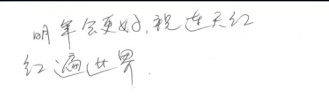 明年会更好，祝连天红
红遍世界.